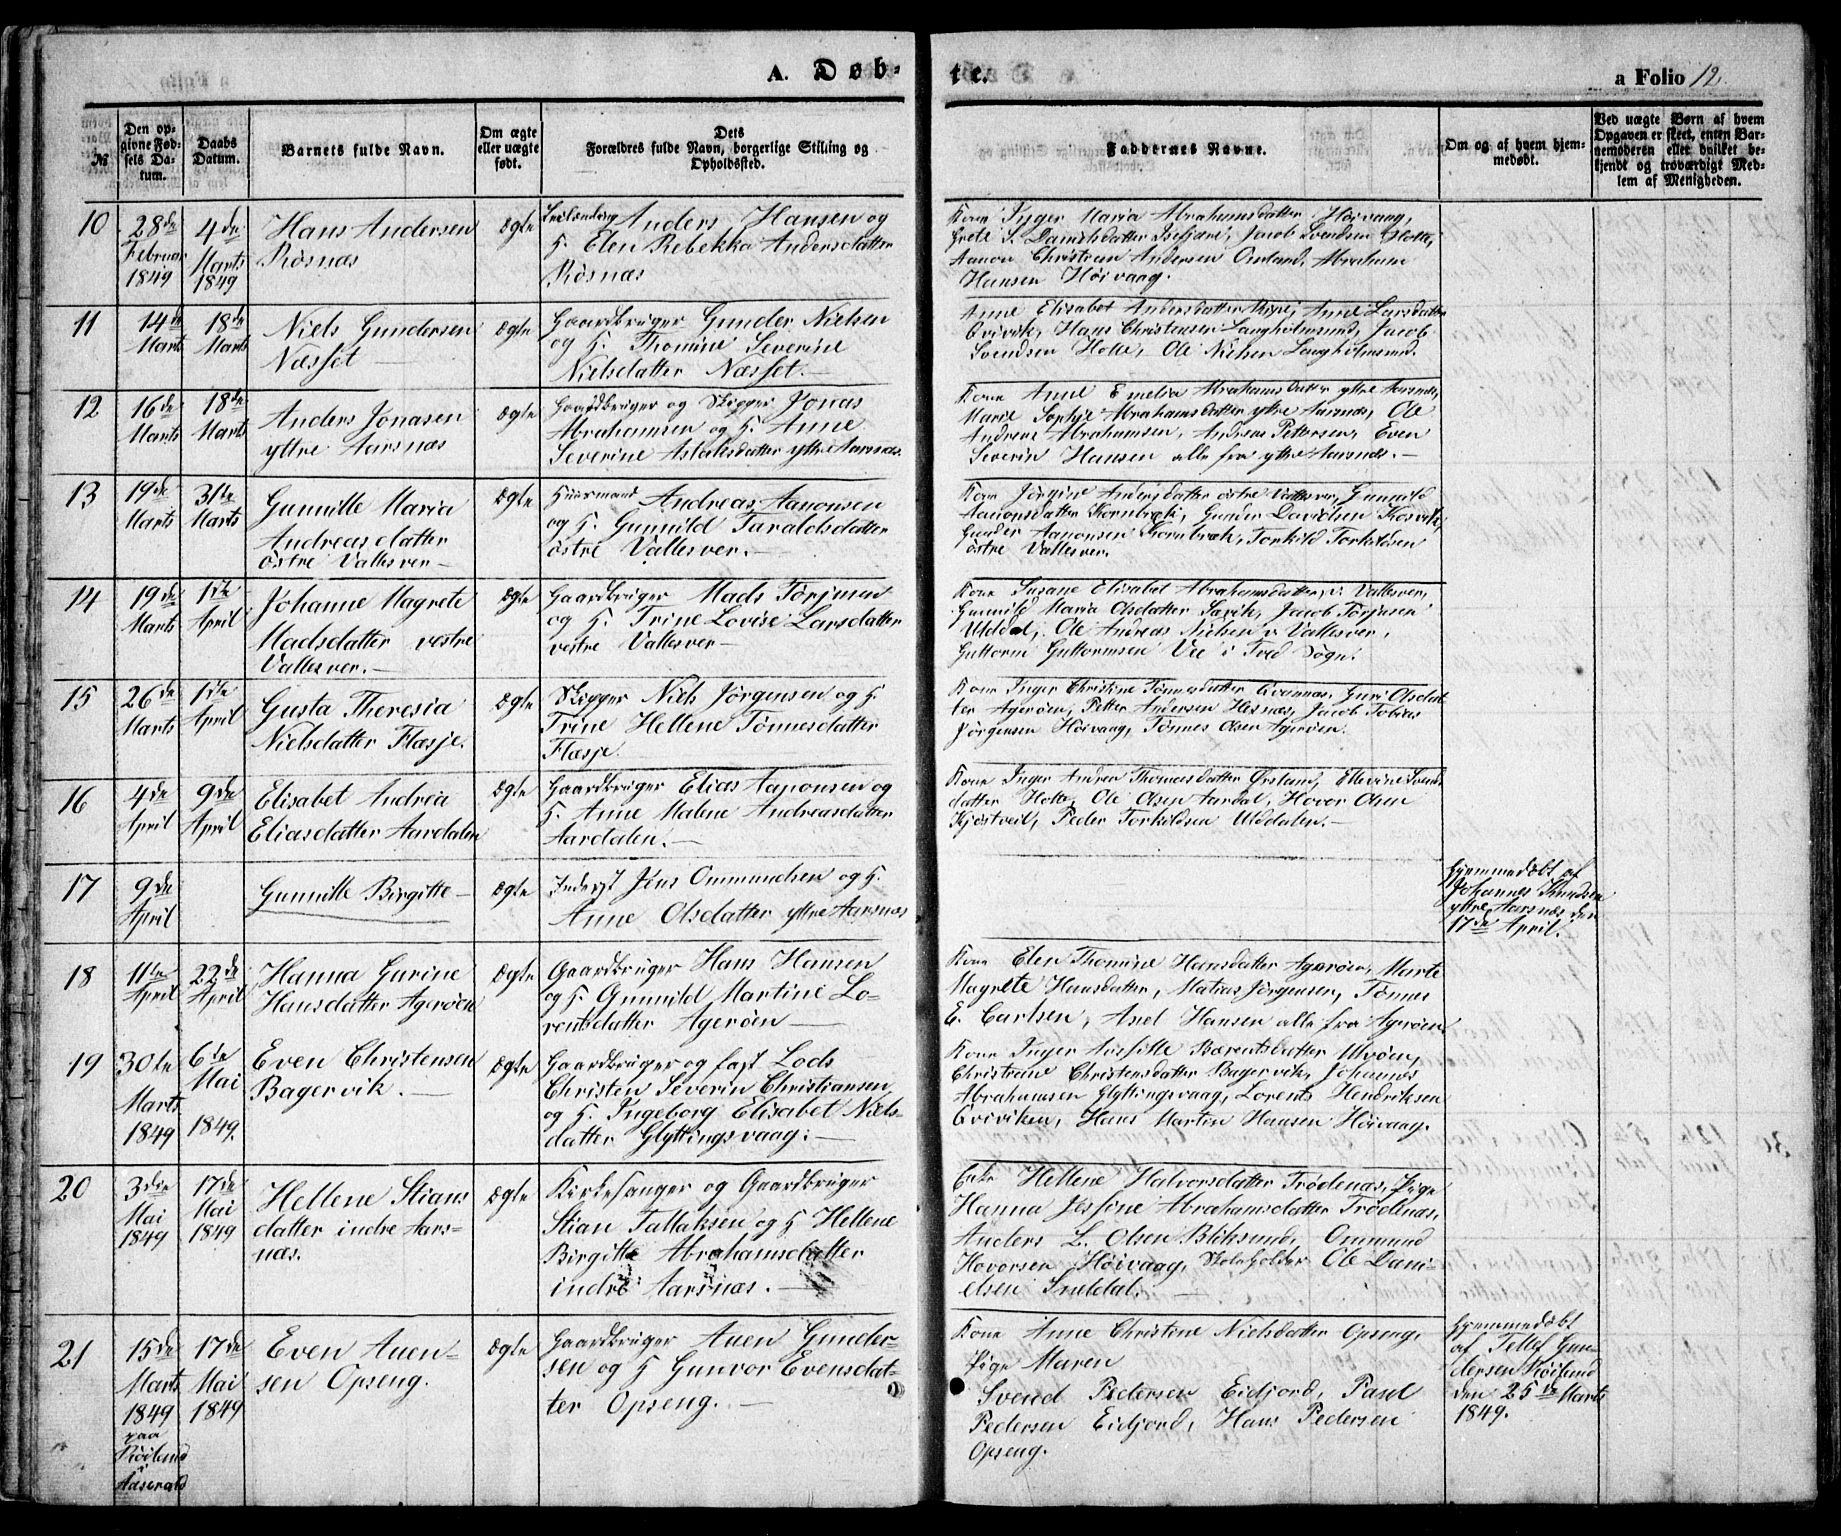 A. Døb-
te.
a Folio 12.
№
Den op-
givne Fød-
sels Da-
tum.
Daabs
Datum.
Barnets fulde Navn.
Om ægte
eller uægte
født.
Dets
Forældres fulde Navn, borgerlige Stilling og
Opholdssted.
Faddernes Navne.
Om og af hvem hjem-
medøbt.
Ved uægte Børn af hvem
Opgaven er skeet, enten Bar-
nemoderen eller hvilket be-
kjendt og troværdigt Med-
lem af Menigheden.
10
28de
Februar
1849
4de
Marts
1849
Hans Andersen
Rösnæs
ægte
Anders Hansen og
H. Elen Rebekka Andersdatter
Rösnæs
Kone Inger Maria Abrahamsdatter Höivaag,
Grete S. Danielsdatter Isefjær, Jacob Svendsen Holte,
Aanon Christian Andersen Omland, Abraham
Hansen Höivaag.
11
14de
Marts
18de
Marts
Niels Gundersen
Næsset
ægte
Gaardbruger Gunder Nielsen
og H. Thomine Severine
Nielsdatter Næsset.—
Anne Elisabet Andersdatter Anne Larsdatter
Qviviк, Hans Christensen Langholmsund, Jacob
Svendsen Holte, Ole Nielsen Langholmsund.
12
16de
Marts
18de
Marts
Anders Jonasen
yttre Aarsnæs
ægte
Gaardbruger og Skipper Jonas
Abrahamsen og H. Anne
Severine Aslaksdatter yttre Aarsnæs.
Kone Anne Emelia Abrahamsdatter yttre Aarsnæs,
Marie Sophie Abrahamsdatter yttre Aarsnæs, Ole
Andreas Abrahamsen, Andreas Pettersen, Even
Severin Hansen alle fra yttre Aarsnæs.—
13
19de
Marts
31te
Marts
Gunnille Maria
Andreasdatter
östre Vallesver—
ægte
Huusmand Andreas Aanonsen
og H. Gunnild Taraldsdatter
östre Vallesver.—
Kone Jörgine Andersdatter östre Vallesver, Gunnild
Aanonsdatter Kornbræk, Gunder Davidsen Kosvik,
Gunder Aanonsen Kornbræk, Torkild Torkildsen
östre Vallesver.
14
19de
Marts
1ste
April
Johanne Magrete
Madsdatter vestre
Vallesver.—
ægte
Gaardbruger Mads Törjusen
og H. Trine Lovise Larsdatter
vestre Vallesver—
Kone Susane Elisabet Abrahamsdatter v: Vallesver,
Gunnild Maria Olsdatter Sævik, Jacob Törjusen
Uldal, Ole Andreas Nielsen v Vallesver,
Guttorm Guttormsen Vee i Tved Sogn.
15
26de
Marts
1ste
April
Gusta Theresia
Nielsdatter Flæsje.
ægte
Skipper Niels Jörgensen og H.
Trine Hellene Tönnesdatter
Flæsje.
Kone Inger Christine Tönnesdatter Qvannæs, Guri Olsdat-
ter Ageröen, Petter Andersen Hesnæs, Jacob Tobias
Jörgensen Höivaag, Tönnes Olsen Ageröen.
16
4de
April
9de
April
Elisabet Andrea
Eliasdatter Aardalen
ægte
Gaardbruger Elias Aanonsen og
H. Anne Malene Andreasdatter
Aardalen.—
Kone Inger Andrea Thomasdatter Örsland, Ellevine Svends-
datter Holte, Ole Olsen Aardal, Hovor Olsen
Kjöstveit, Peder Torkildsen Uldalen.—
17
9de
April
Gunnille Birgitte—
ægte
Inderst Jens Ommundsen og H.
Anne Olsdatter yttre Aarsnæs
Hjemmedöbt af
Johannes Knudsen
yttre Aarsnæs den
17de April.
18
11te
April
22de
April
Hanna Gurine
Hansdatter Ageröen
ægte
Gaardbruger Hans Hansen
og H. Gunnild Martine Lo-
rentsdatter Ageröen—
Kone Elen Thomine Hansdatter Ageröen, Marte
Magrete Hansdatter, Matias Jörgensen, Tönnes
E. Carlsen, Axel Hansen alle fra Ageröen.
19
30te
Marts
1849
6te
Mai
1849.
Even Christensen
Bagervik.—
ægte
Gaardbruger og fast Lods
Christen Severin Christiansen
og H. Ingeborg Elisabet Niels-
datter Glyttingsvaag.—
Kone Inger Assille Bærentsdatter Ulvöen,
Christiane Christensdatter Bagervik, Johannes
Abrahamsen Glyttingsvaag, Lorents Hendriksen
Qviviken, Hans Martin Hansen Höivaag.
20
3die
Mai
1849
17de
Mai
1849
Hellene Stians
datter indre Aars-
næs.
ægte
Kirkesanger og Gaardbruger
Stian Tallaksen og H Hellene
Birgitte Abrahamsdatter
indre Aarsnæs.—
Enke Hellene Halvorsdatter Trödenæs, Pige
Hanna Jessine Abrahamsdatter Trödenæs,
Anders L. Olsen Bliksund, Ommund
Hovorsen Höivaag, Skoleholder Ole Dani-
elsen Sneldal.—
21
15de
Marts
1849
paa
Röilund
Aaserald
17de
Mai
1849
Even Auen-
sen Opseng.
ægte
Gaardbruger Auen Gunder-
sen og H Gunvor Evensdat-
ter Opseng.—
Kone Anne Christine Nielsdatter Opseng,
Pige Maren
Svend Pedersen Eidjord, Paul
Pedersen Eidjord, Hans Pedersen
Opseng.
Hjemmedöbt
af Tellef Gun-
dersen Röilund
den 25de Marts
1849.